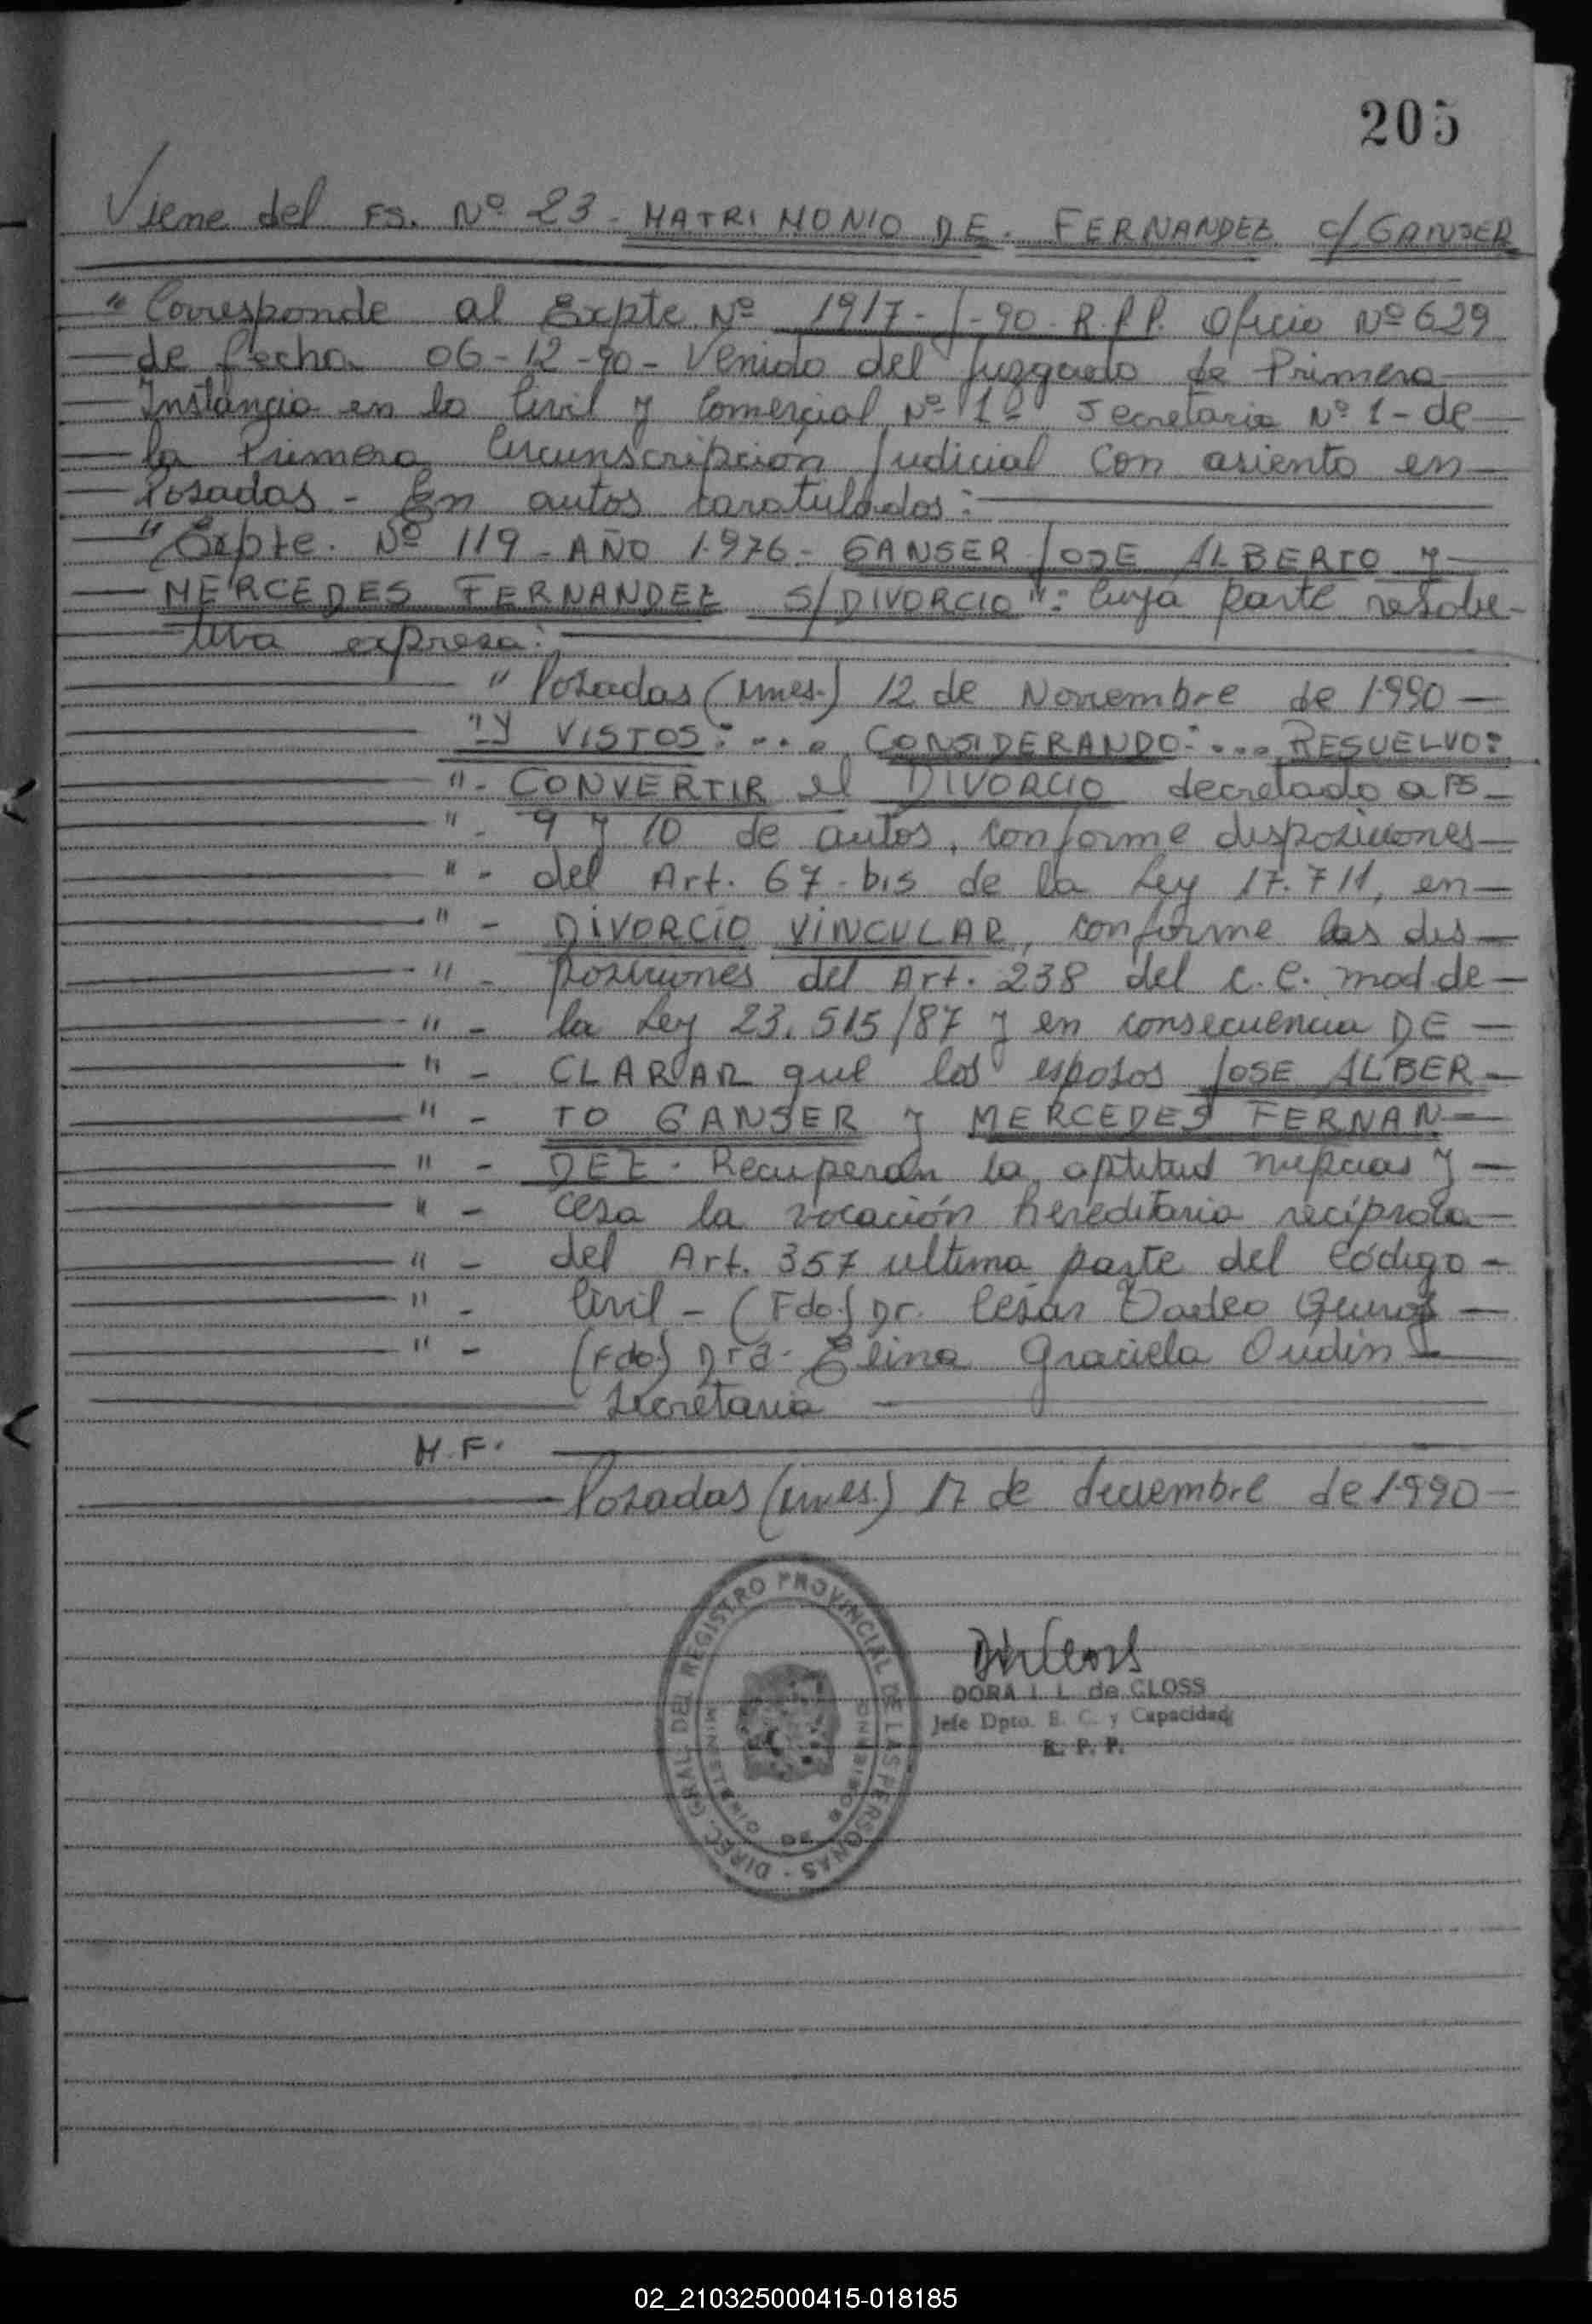 205
Viene del FS. Nº 23 - MATRIMONIO DE. FERNANDEZ c/ GANSER
" Corresponde al Expte Nº 1917-J-90-R.P.P. Oficio Nº 629
de fecha 06-12-90- Venido del Juzgado de Primera
Instancia en lo Civil y Comercial Nº 1- Secretaria Nº 1- de
la Primera Circunscripcion Judicial con asiento en
Posadas - En autos caratulados:
" Expte. Nº 119 - AÑO 1.976 - GANSER JOSE ALBERTO y
MERCEDES FERNANDEZ S/ DIVORCIO": Cuya parte resolu-
tiva expresa:
" Posadas (Mnes.) 12 de Noviembre de 1.990 —
"Y VISTOS: .... CONSIDERANDO: .... RESUELVO:
" - CONVERTIR el DIVORCIO decretado a FS
" - 9 y 10 de autos, conforme disposiciones
" - del Art. 67-bis de la Ley 17.711, en
" - DIVORCIO VINCULAR, conforme las dis
" - posiciones del Art. 238 del C.C. mod. de
" - la Ley 23.515/87 y en consecuencia DE
" - CLARAR que los esposos JOSE ALBER
" - TO GANSER y MERCEDES FERNAN
" - DEZ - Recuperan la aptitud nupcias y
" - cesa la vocación hereditaria recíproca
" - del Art. 357 ultima parte del Código
" - Civil - (Fdo.) Dr. César Tadeo
" - (Fdo.) Dra. Elina Graciela Oudin
Secretaria
M.F.
Posadas (Mnes.) 17 de diciembre de 1.990
DIREC. GRAL. DEL REGISTRO PROVINCIAL DE LAS PERSONAS
MINISTERIO DE GOBIERNO
DORA I. L. de CLOSS
Jefe Dpto. E. C. y Capacidad
R. P. P.
02_210325000415-018185